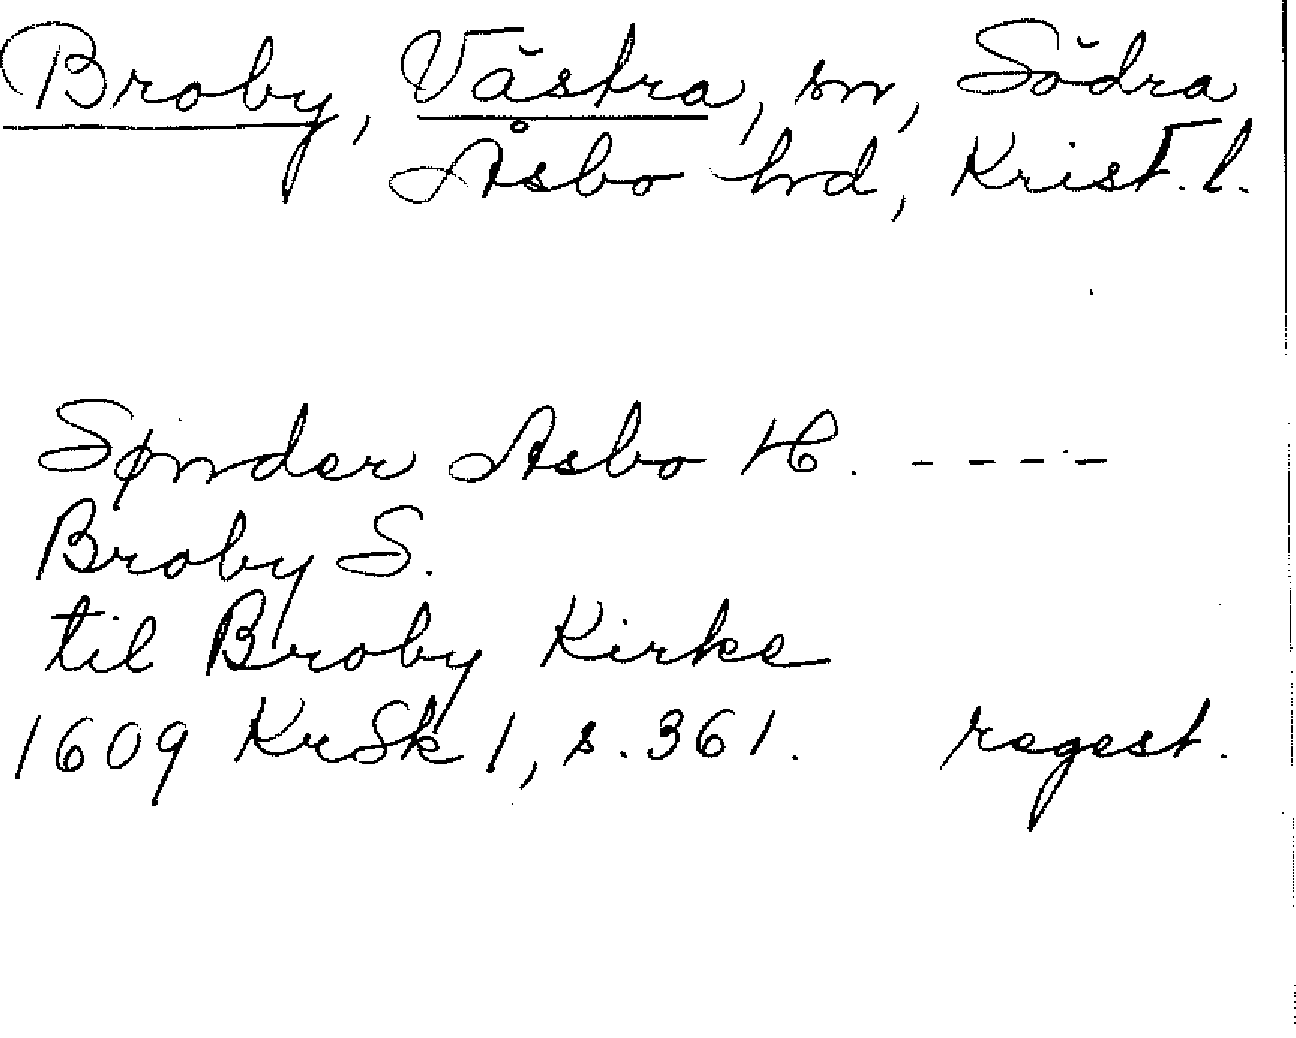 Broby, Västra, sn, Södra
Åsbo hd, Krist. l.
Sønder Asbo H. - - - -
Broby S.
til Broby Kirke
1609 KrSk 1, s. 361. regest.